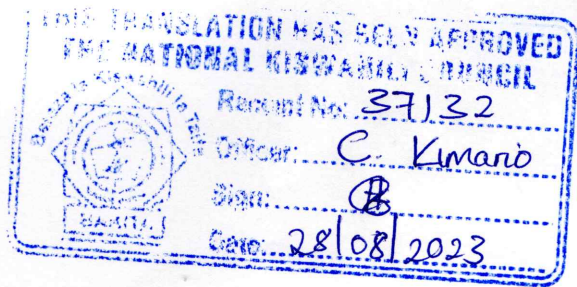 THIS TRANSLATION HAS BEEN APPROVED
THE NATIONAL KISWAHILI COUNCIL
Baraza la Kiswahili la Taifa
Receipt No: 37132
Officer: C. Kimario
Sign:
Date: 28/08/2023
BAKITA